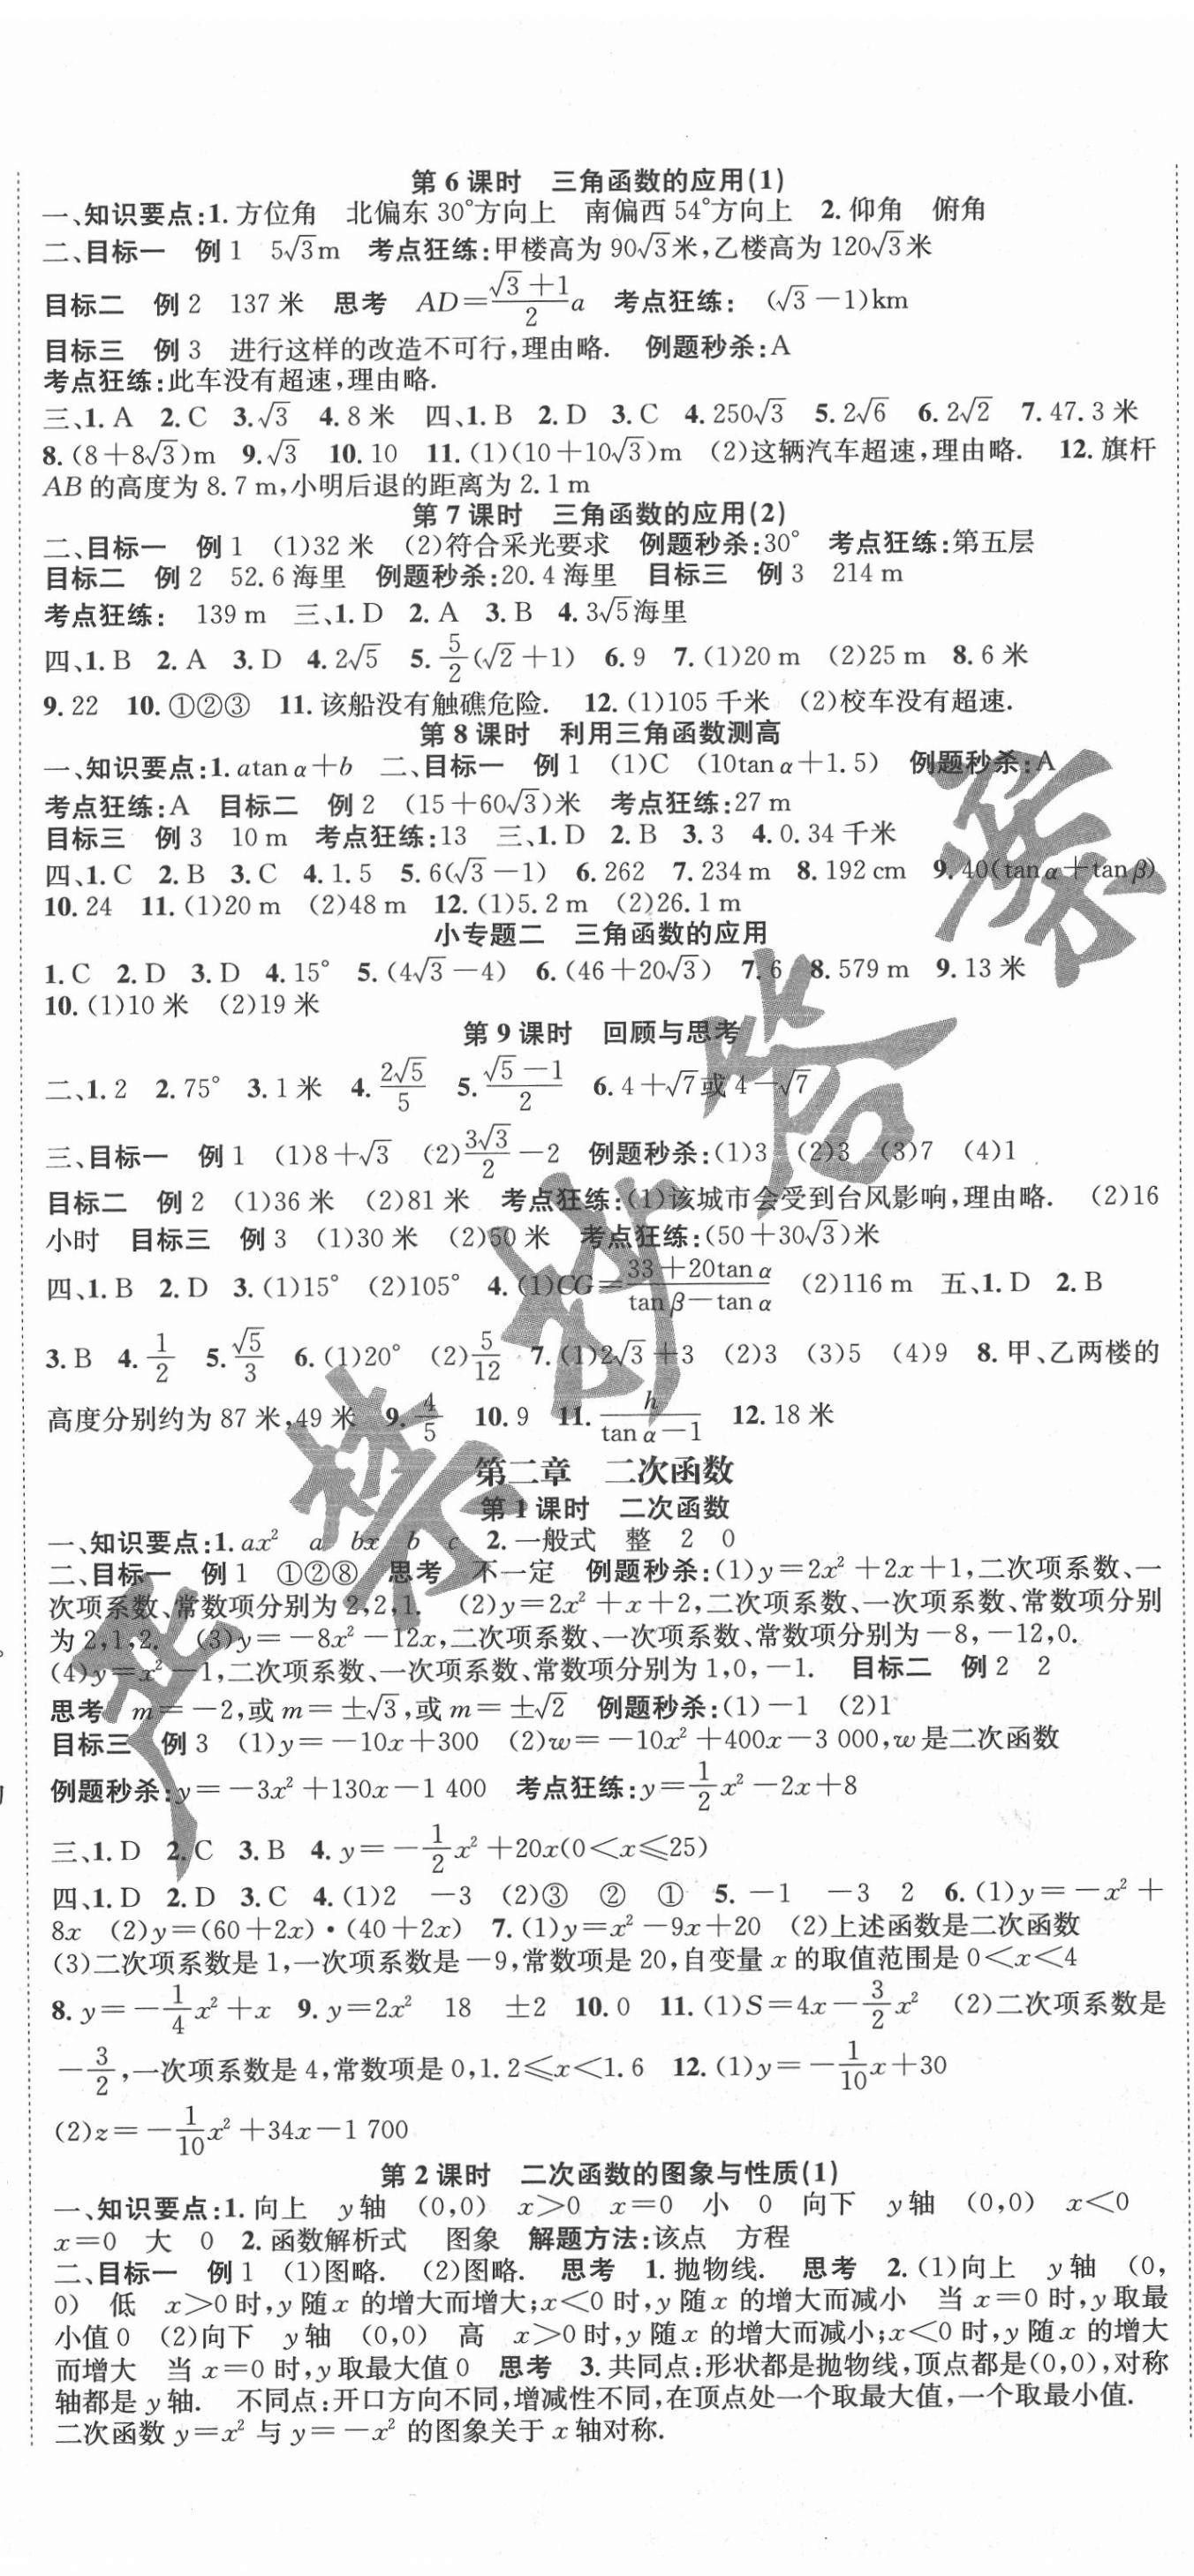 第6课时　三角函数的应用(1)
一、知识要点:1.方位角　北偏东30°方向上　南偏西54°方向上　2.仰角　俯角
二、目标一　例1　5√3m　考点狂练:甲楼高为90√3米,乙楼高为120√3米
目标二　例2　137米　思考　AD=(√3+1)/2 a　考点狂练:　(√3-1)km
目标三　例3　进行这样的改造不可行,理由略.　例题秒杀:A
考点狂练:此车没有超速,理由略.
三、1.A　2.C　3.√3　4.8米　四、1.B　2.D　3.C　4.250√3　5.2√6　6.2√2　7.47.3米
8.(8+8√3)m　9.√3　10.10　11.(1)(10+10√3)m　(2)这辆汽车超速,理由略.　12.旗杆
AB的高度为8.7m,小明后退的距离为2.1m
第7课时　三角函数的应用(2)
二、目标一　例1　(1)32米　(2)符合采光要求　例题秒杀:30°　考点狂练:第五层
目标二　例2　52.6海里　例题秒杀:20.4海里　目标三　例3　214m
考点狂练:　139m　三、1.D　2.A　3.B　4.3√5海里
四、1.B　2.A　3.D　4.2√5　5.5/2(√2+1)　6.9　7.(1)20m　(2)25m　8.6米
9.22　10.①②③　11.该船没有触礁危险.　12.(1)105千米　(2)校车没有超速.
第8课时　利用三角函数测高
一、知识要点:1.atanα+b　二、目标一　例1　(1)C　(10tanα+1.5)　例题秒杀:A
考点狂练:A　目标二　例2　(15+60√3)米　考点狂练:27m
目标三　例3　10m　考点狂练:13　三、1.D　2.B　3.3　4.0.34千米
四、1.C　2.B　3.C　4.1.5　5.6(√3-1)　6.262　7.234m　8.192cm　9.40(tanα+tanβ)
10.24　11.(1)20m　(2)48m　12.(1)5.2m　(2)26.1m
小专题二　三角函数的应用
1.C　2.D　3.D　4.15°　5.(4√3-4)　6.(46+20√3)　7.6　8.579m　9.13米
10.(1)10米　(2)19米
第9课时　回顾与思考
二、1.2　2.75°　3.1米　4.2√5/5　5.(√5-1)/2　6.4+√7或4-√7
三、目标一　例1　(1)8+√3　(2)3√3/2-2　例题秒杀:(1)3　(2)3　(3)7　(4)1
目标二　例2　(1)36米　(2)81米　考点狂练:(1)该城市会受到台风影响,理由略.　(2)16
小时　目标三　例3　(1)30米　(2)50米　考点狂练:(50+30√3)米
四、1.B　2.D　3.(1)15°　(2)105°　4.(1)CG=(33+20tanα)/(tanβ-tanα)　(2)116m　五、1.D　2.B
3.B　4.1/2　5.√5/3　6.(1)20°　(2)5/12　7.(1)2√3+3　(2)3　(3)5　(4)9　8.甲、乙两楼的
高度分别约为87米,49米　9.4/5　10.9　11.h/(tanα-1)　12.18米
第二章　二次函数
第1课时　二次函数
一、知识要点:1.ax²　a　bx　b　c　2.一般式　整　2　0
二、目标一　例1　①②⑧　思考　不一定　例题秒杀:(1)y=2x²+2x+1,二次项系数、一
次项系数、常数项分别为2,2,1.　(2)y=2x²+x+2,二次项系数、一次项系数、常数项分别
为2,1,2.　(3)y=-8x²-12x,二次项系数、一次项系数、常数项分别为-8,-12,0.
(4)y=x²-1,二次项系数、一次项系数、常数项分别为1,0,-1.　目标二　例2　2
思考　m=-2,或m=±√3,或m=±√2　例题秒杀:(1)-1　(2)1
目标三　例3　(1)y=-10x+300　(2)w=-10x²+400x-3 000,w是二次函数
例题秒杀:y=-3x²+130x-1 400　考点狂练:y=1/2x²-2x+8
三、1.D　2.C　3.B　4.y=-1/2x²+20x(0<x⩽25)
四、1.D　2.D　3.C　4.(1)2　-3　(2)③　②　①　5.-1　-3　2　6.(1)y=-x²+
8x　(2)y=(60+2x)·(40+2x)　7.(1)y=x²-9x+20　(2)上述函数是二次函数
(3)二次项系数是1,一次项系数是-9,常数项是20,自变量x的取值范围是0<x<4
8.y=-1/4x²+x　9.y=2x²　18　±2　10.0　11.(1)S=4x-3/2x²　(2)二次项系数是
-3/2,一次项系数是4,常数项是0,1.2⩽x<1.6　12.(1)y=-1/10x+30
(2)z=-1/10x²+34x-1 700
第2课时　二次函数的图象与性质(1)
一、知识要点:1.向上　y轴　(0,0)　x>0　x=0　小　0　向下　y轴　(0,0)　x<0
x=0　大　0　2.函数解析式　图象　解题方法:该点　方程
二、目标一　例1　(1)图略.　(2)图略.　思考　1.抛物线.　思考　2.(1)向上　y轴　(0,
0)　低　x>0时,y随x的增大而增大;x<0时,y随x的增大而减小　当x=0时,y取最
小值0　(2)向下　y轴　(0,0)　高　x>0时,y随x的增大而减小;x<0时,y随x的增大
而增大　当x=0时,y取最大值0　思考　3.共同点:形状都是抛物线,顶点都是(0,0),对称
轴都是y轴.　不同点:开口方向不同,增减性不同,在顶点处一个取最大值,一个取最小值.
二次函数y=x²与y=-x²的图象关于x轴对称.
严禁抄答案